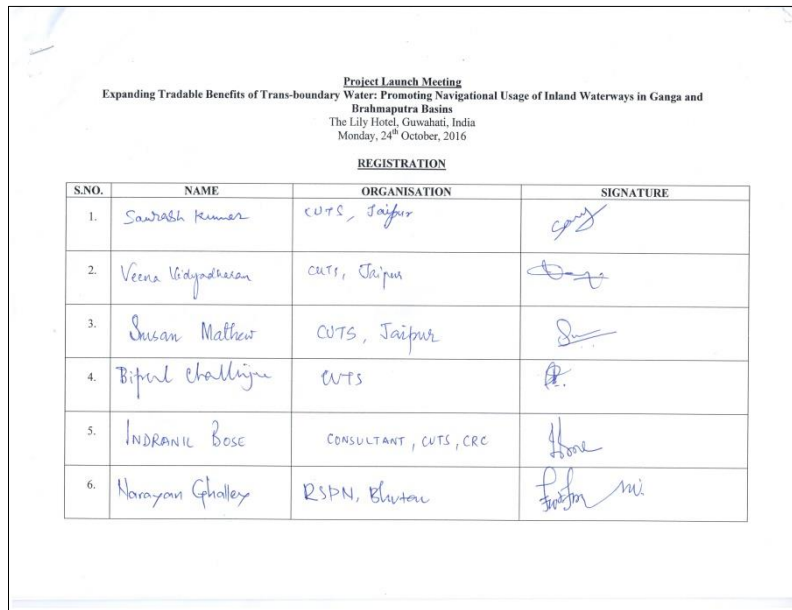 Project Launch Meeting
Expanding Tradable Benefits of Trans-boundary Water: Promoting Navigational Usage of Inland Waterways in Ganga and
Brahmaputra Basins
The Lily Hotel, Guwahati, India
Monday, 24th October, 2016
REGISTRATION
S.NO. NAME ORGANISATION SIGNATURE
1. Saurabh Kumar CUTS, Jaipur
2. Veena Vidyadharan CUTS, Jaipur
3. Susan Mathew CUTS, Jaipur
4. Bipul CUTS
5. INDRANIL BOSE CONSULTANT, CUTS, CRC
6. Narayan Ghalley RSPN, Bhutan